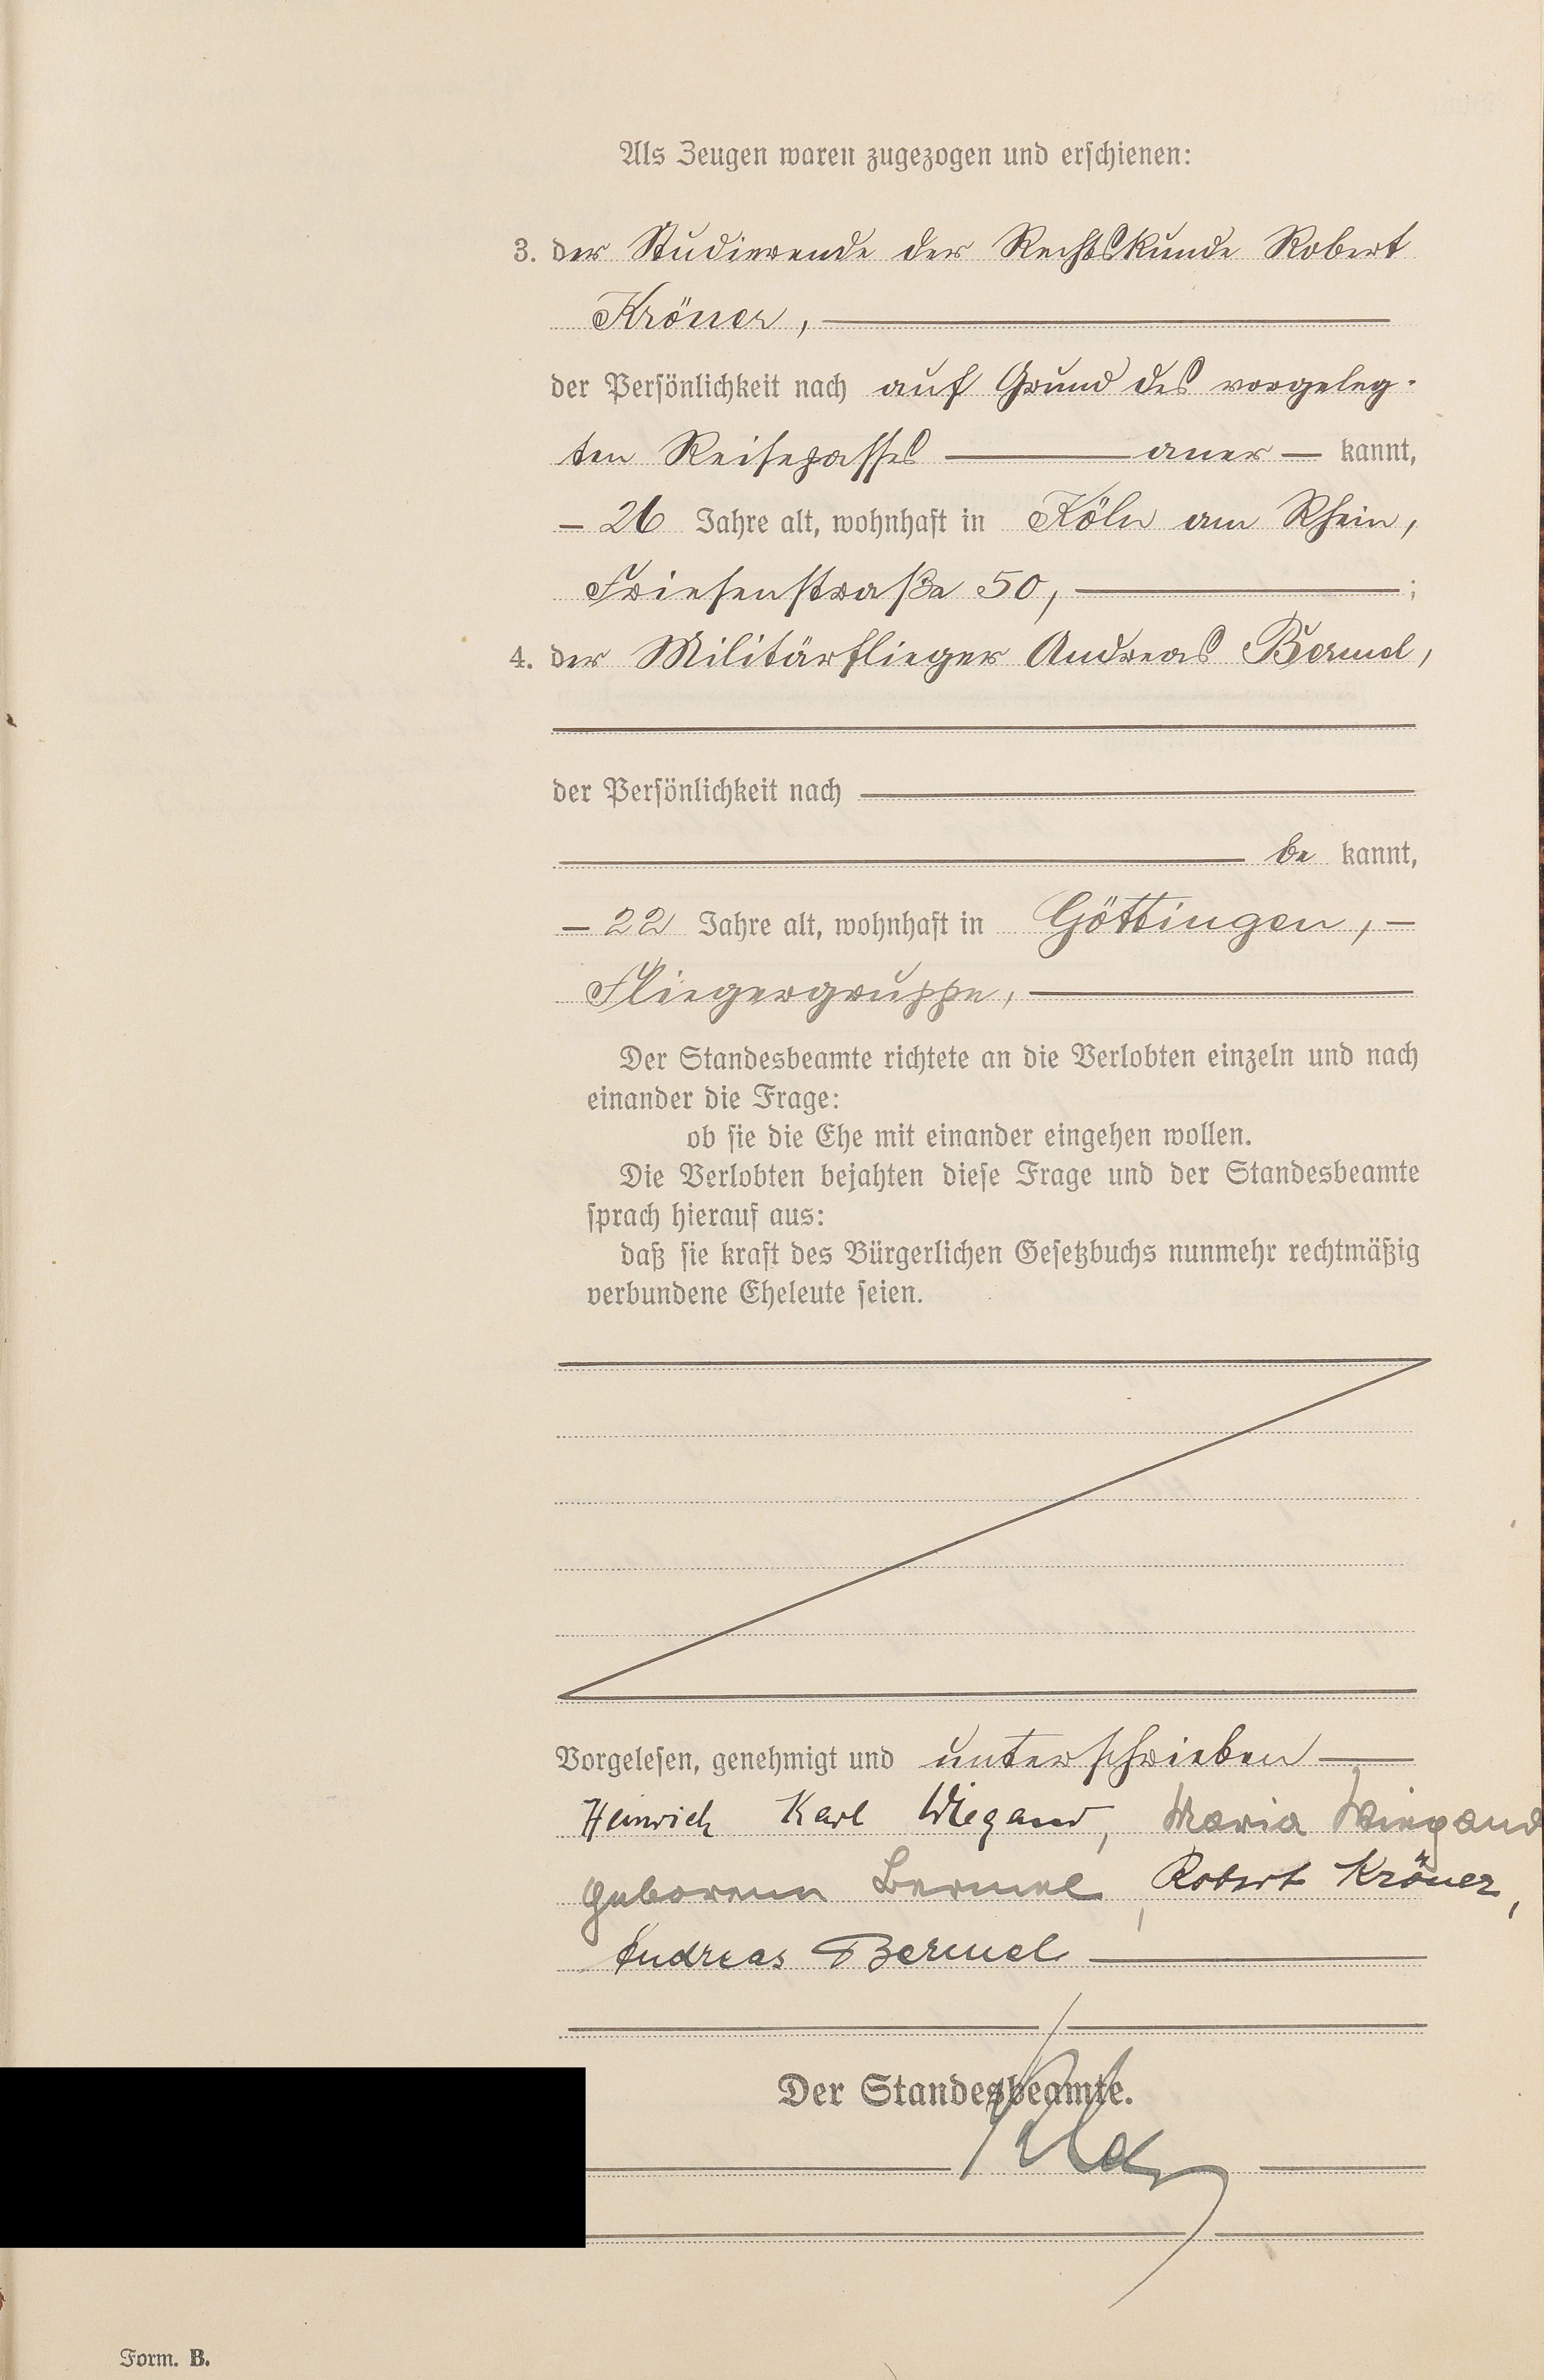 Als Zeugen waren zugezogen und erschienen:
3. der Studierende der Rechtskunde Robert
Kröner,
der Persönlichkeit nach auf Grund des vorgeleg-
ten Reisepasses aner kannt,
26 Jahre alt, wohnhaft in Köln am Rhein,
Friesenstraße 50, ;
4. der Militärflieger Andreas Bermel,
der Persönlichkeit nach
be kannt,
22 Jahre alt, wohnhaft in Göttingen,
Fliegergruppe,
Der Standesbeamte richtete an die Verlobten einzeln und nach
einander die Frage:
ob sie die Ehe mit einander eingehen wollen.
Die Verlobten bejahten diese Frage und der Standesbeamte
sprach hierauf aus:
daß sie kraft des Bürgerlichen Gesetzbuchs nunmehr rechtmäßig
verbundene Eheleute seien.
Vorgelesen, genehmigt und unterschrieben
Heinrich Karl Wiegand, Maria Wiegand
geborene Bermel, Robert Kröner,
Andreas Bermel
Der Standesbeamte.
Form. B.